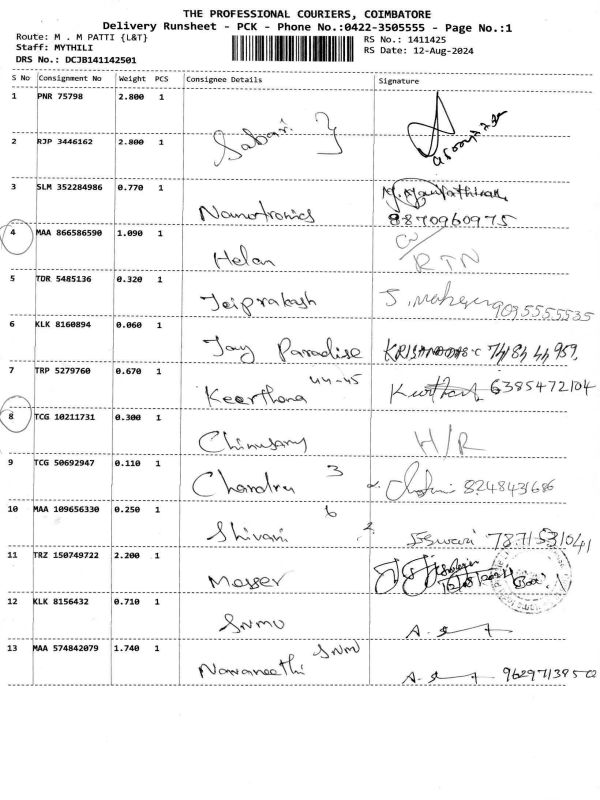 THE PROFESSIONAL COURIERS, COIMBATORE
Delivery Runsheet - PCK - Phone No.:0422-3505555 - Page No.:1
Route: M . M PATTI {L&T}
RS No.: 1411425
Staff: MYTHILI
RS Date: 12-Aug-2024
DRS No.: DCJB141142501
S No Consignment No Weight PCS Consignee Details Signature
1 PNR 75798 2.800 1
2 RJP 3446162 2.800 1 Sabari
3 SLM 352284986 0.770 1 Nanotronics 8870960975
4 MAA 866586590 1.090 1 Helan RTN
5 TDR 5485136 0.320 1 Jeiprakash 9095555535
6 KLK 8160894 0.060 1 Jay Paradise
7 TRP 5279760 0.670 1 Keerthana 44-45 6385472104
8 TCG 10211731 0.300 1 Chinusamy H/R
9 TCG 50692947 0.110 1 Chandru 3
10 MAA 109656330 0.250 1 Shivani 6
11 TRZ 150749722 2.200 1 Messer
12 KLK 8156432 0.710 1 SNMV
13 MAA 574842079 1.740 1 Navaneethi SNMV 9629713850